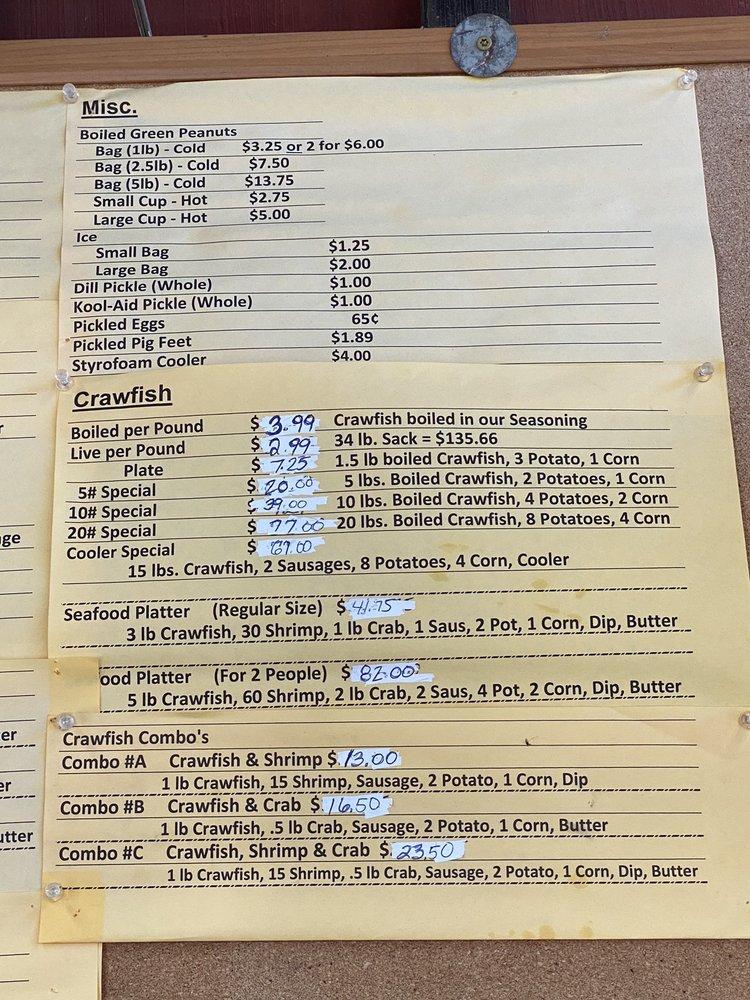 Misc.
Boiled Green Peanuts
Bag (1lb) - Cold $3.25 or 2 for $6.00
Bag (2.5lb) - Cold $7.50
Bag (5lb) - Cold $13.75
Small Cup - Hot $2.75
Large Cup - Hot $5.00
Ice
Small Bag $1.25
Large Bag $2.00
Dill Pickle (Whole) $1.00
Kool-Aid Pickle (Whole) $1.00
Pickled Eggs 65¢
Pickled Pig Feet $1.89
Styrofoam Cooler $4.00
Crawfish
Boiled per Pound $ 3.99 Crawfish boiled in our Seasoning
Live per Pound $ 2.99 34 lb. Sack = $135.66
Plate $ 7.25 1.5 lb boiled Crawfish, 3 Potato, 1 Corn
5# Special $ 20.00 5 lbs. Boiled Crawfish, 2 Potatoes, 1 Corn
10# Special $ 39.00 10 lbs. Boiled Crawfish, 4 Potatoes, 2 Corn
20# Special $ 77.00 20 lbs. Boiled Crawfish, 8 Potatoes, 4 Corn
Cooler Special $ 69.00
15 lbs. Crawfish, 2 Sausages, 8 Potatoes, 4 Corn, Cooler
Seafood Platter (Regular Size) $ 41.75
3 lb Crawfish, 30 Shrimp, 1 lb Crab, 1 Saus, 2 Pot, 1 Corn, Dip, Butter
ood Platter (For 2 People) $ 82.00
5 lb Crawfish, 60 Shrimp, 2 lb Crab, 2 Saus, 4 Pot, 2 Corn, Dip, Butter
Crawfish Combo's
Combo #A Crawfish & Shrimp $ 13.00
1 lb Crawfish, 15 Shrimp, Sausage, 2 Potato, 1 Corn, Dip
Combo #B Crawfish & Crab $ 16.50
1 lb Crawfish, .5 lb Crab, Sausage, 2 Potato, 1 Corn, Butter
Combo #C Crawfish, Shrimp & Crab $ 23.50
1 lb Crawfish, 15 Shrimp, .5 lb Crab, Sausage, 2 Potato, 1 Corn, Dip, Butter